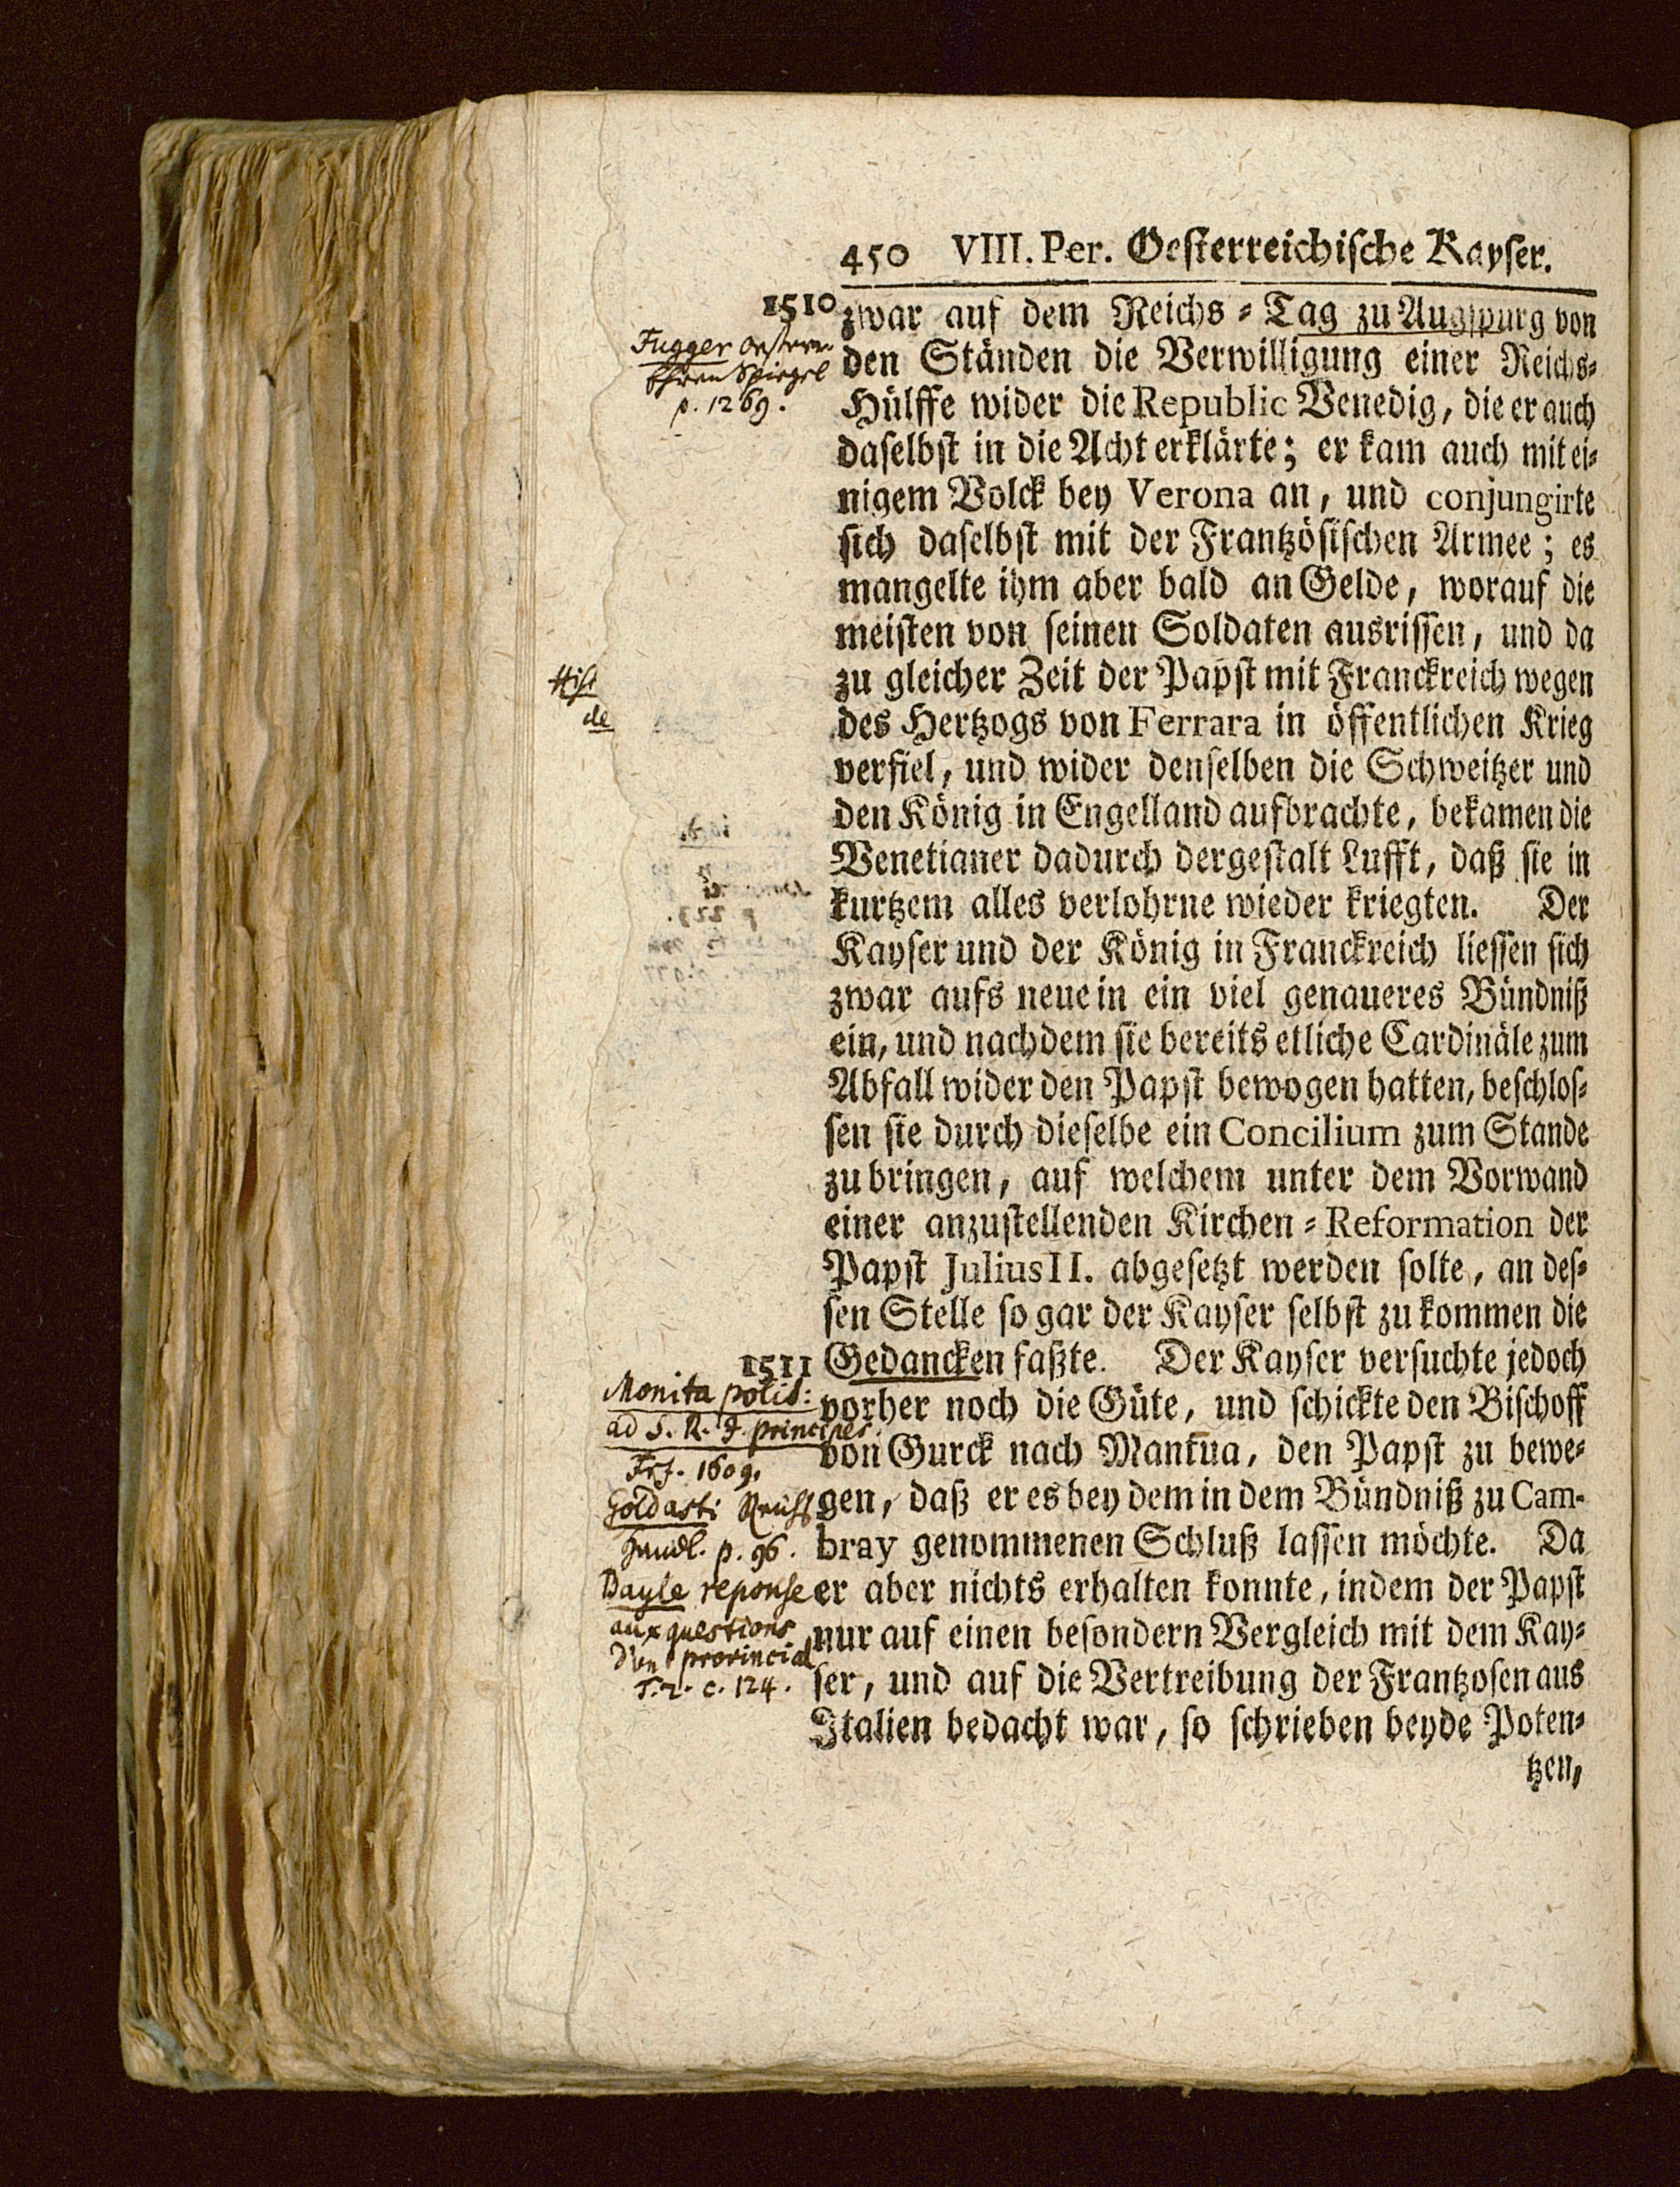 450 VIII. Per. Oesterreichische Kayser.
1510
zwar auf dem Reichs-Tag zu Augspurg von
den Ständen die Verwilligung einer Reichs-
Hülffe wider die Republic Venedig, die er auch
daselbst in die Acht erklärte; er kam auch mit ei-
nigem Volck bey Verona an, und conjungirte
sich daselbst mit der Frantzösischen Armee; es
mangelte ihm aber bald an Gelde, worauf die
meisten von seinen Soldaten ausrissen, und da
zu gleicher Zeit der Papst mit Franckreich wegen
des Hertzogs von Ferrara in öffentlichen Krieg
verfiel, und wider denselben die Schweitzer und
den König in Engelland aufbrachte, bekamen die
Venetianer dadurch dergestalt Lufft, daß sie in
kurtzem alles verlohrne wieder kriegten. Der
Kayser und der König in Franckreich liessen sich
zwar aufs neue in ein viel genaueres Bündniß
ein, und nachdem sie bereits etliche Cardinäle zum
Abfall wider den Papst bewogen hatten, beschlos-
sen sie durch dieselbe ein Concilium zum Stande
zu bringen, auf welchem unter dem Vorwand
einer anzustellenden Kirchen-Reformation der
Papst Julius II. abgesetzt werden solte, an des-
sen Stelle so gar der Kayser selbst zu kommen die
1511
Gedancken faßte. Der Kayser versuchte jedoch
vorher noch die Güte, und schickte den Bischoff
von Gurck nach Mantua, den Papst zu bewe-
gen, daß er es bey dem in dem Bündniß zu Cam-
bray genommenen Schluß lassen möchte. Da
er aber nichts erhalten konnte, indem der Papst
nur auf einen besondern Vergleich mit dem Kay-
ser, und auf die Vertreibung der Frantzosen aus
Italien bedacht war, so schrieben beyde Poten-
tzen,
Fugger
Ehren Spiegel
p. 1269.
Hist
de
Monita polit:
ad S. R. I. principes.
Frf. 1609.
Goldasti Reichs
handl. p. 96.
Bayle reponse
aux questions
d'un provincial
T. 2. c. 124.